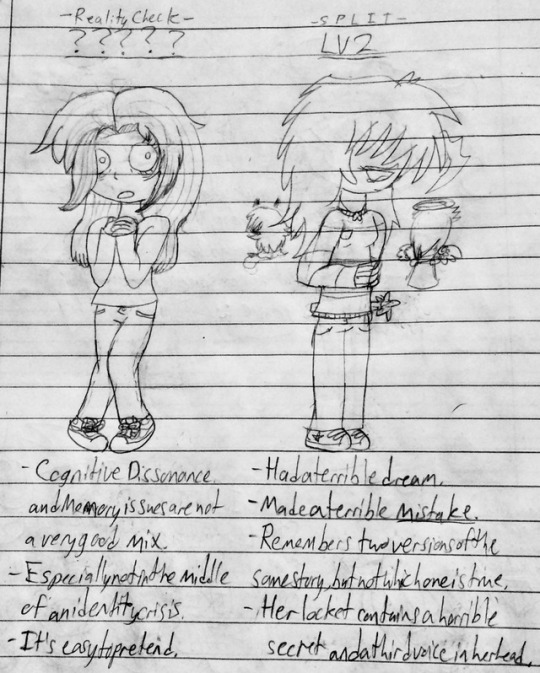 -Reality Check-
?????
- Cognitive Dissonance
and Memory issues are not
a very good mix.
- Especially not in the middle
of an identity crisis.
- It's easy to pretend.
-SPLIT-
LV2
- Had a terrible dream.
- Made a terrible mistake.
- Remembers two versions of the
same story, but not which one is true.
- Her locket contains a horrible
secret and a third voice in her head.